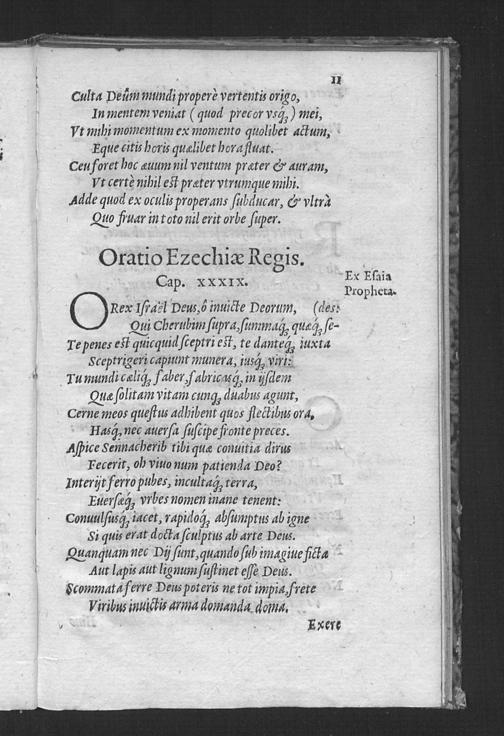 11
Culta Deûm mundi properè vertentis origo,
In mentem veniat (quod precor vsq́ꝫ) mei,
Vt mihi momentum ex momento quolibet actum,
Eque citis horis quælibet hora fluat.
Ceu foret hoc æuum nil ventum præter & auram,
Vt certè nihil est præter vtrumque mihi.
Adde quod ex oculis properans subducar, & vltrà
Quo fruar in toto nil erit orbe super.
Oratio Ezechiæ Regis.
Cap. XXXIX.
Ex Esaia
Propheta.
O Rex Israël Deus, ô inuicte Deorum, (des:
Qui Cherubim supra, summaq́ꝫ, quæq́ꝫ, se-
Te penes est quicquid sceptri est, te danteq́ꝫ iuxta
Sceptrigeri capiunt munera, iusq́ꝫ viri:
Tu mundi cæliq́ꝫ faber, fabricasq́ꝫ, in ijsdem
Quæ solitam vitam cunq́ꝫ duabus agunt,
Cerne meos questus adhibent quos flectibus ora,
Hasq́ꝫ nec auersa suscipe fronte preces.
Aspice Sennacherib tibi quæ conuitia dirus
Fecerit, oh viuo num patienda Deo?
Interijt ferro pubes, incultaq́ꝫ terra,
Euersæq́ꝫ vrbes nomen inane tenent:
Conuulsusq́ꝫ iacet, rapidoq́ꝫ absumptus ab igne
Si quis erat docta sculptus ab arte Deus.
Quanquam nec Dij sunt, quando sub imagiue ficta
Aut lapis aut lignum sustinet esse Deus.
Scommata ferre Deus poteris ne tot impia, frete
Viribus inuictis arma domanda doma.
Exere